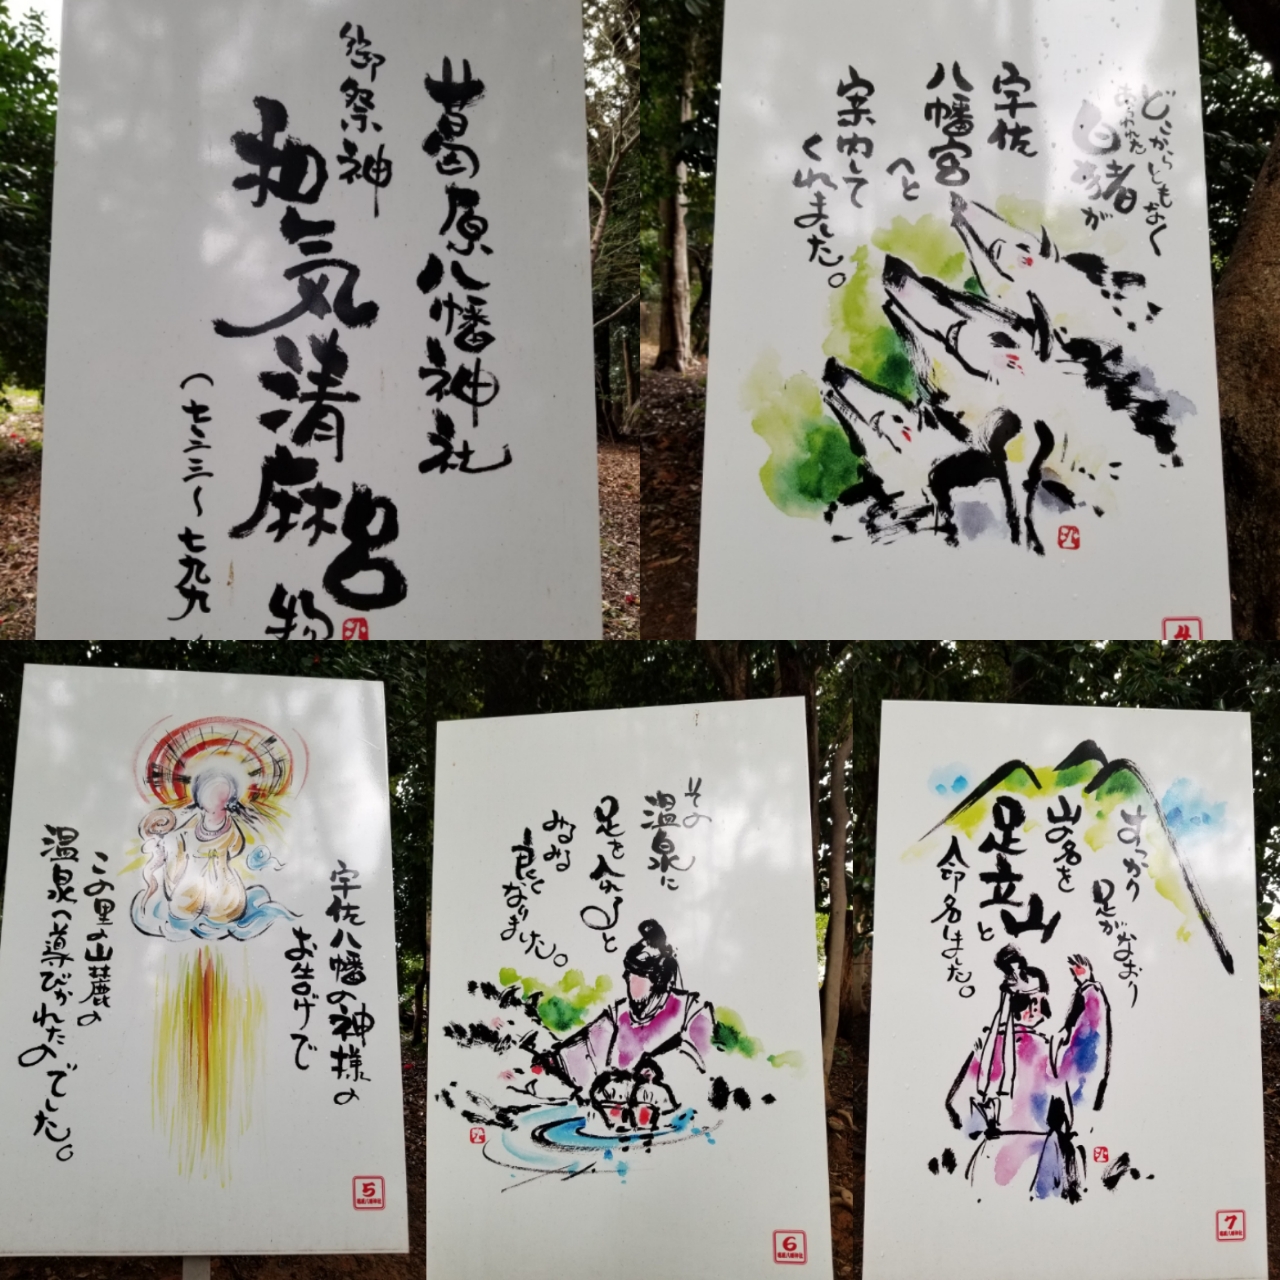 葛原八幡神社
御祭神
和気清麻呂
物
(七三三〜七九九
どこからともなく
あらわれた
白猪が
宇佐
八幡宮
へと
案内して
くれました。
4
宇佐八幡の神様の
お告げで
この里の山麓の
温泉へ導びかれたのでした。
5
その
温泉に
足を入れると
みるみる
良くなりました。
6
すっかり
足がなおり
山の名を
足立山
と
命名しました。
7